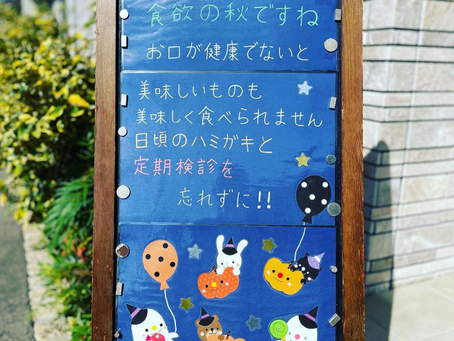 食欲の秋ですね
お口が健康でないと
美味しいものも
美味しく食べられません
日頃のハミガキと
定期検診を
忘れずに!!